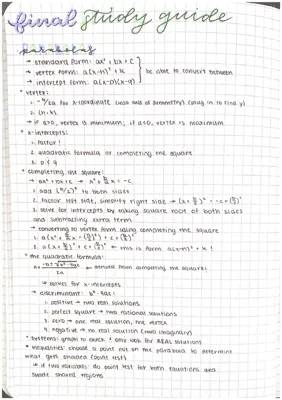 final study guide
parabolas
→ standard form: ax² + bx + c
→ vertex form: a(x-h)² + k } be able to convert between
→ intercept form: a(x-p)(x-q)
* vertex:
1. -b/2a for x-coordinate (also axis of symmetry) (plug in to find y)
2. (h,k)
→ if a>0, vertex is minimum; if a<0, vertex is maximum
* x-intercepts:
1. factor!
2. quadratic formula or completing the square
3. p & q
* completing the square:
→ ax² + bx + c → x² + b/a x = -c
1. add (b/2)² to both sides
2. factor left side, simplify right side → (x + b/2)² = -c + (b/2)²
3. solve for intercepts by taking square root of both sides
and subtracting extra term
→ converting to vertex form using completing the square
1. a(x² + b/a x + (b/2)²) + c + (b/2)²
2. a(x + b/2)² + c + (b/2)² ← this is form a(x-h)² + k!
* the quadratic formula:
x = -b ± √b² - 4ac / 2a ← derived from completing the square!
→ solves for x-intercepts
→ discriminant: b² - 4ac:
1. positive → two real solutions
2. perfect square → two rational solutions
3. zero → one real solution, the vertex
4. negative → no real solution (two imaginary)
* systems: graph to check & only look for REAL solutions
* inequalities: choose a point not on the parabola to determine
what gets shaded (point test)
→ if two variables: do point test for both equations and
shade shared regions